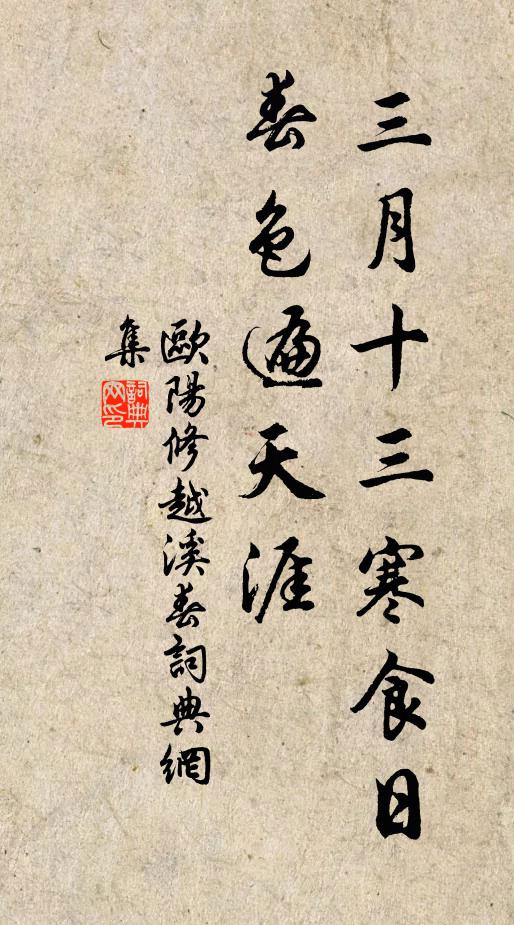 三月十三寒食日
春色遍天涯
歐陽修越溪春詞典網
集
詞典
网印